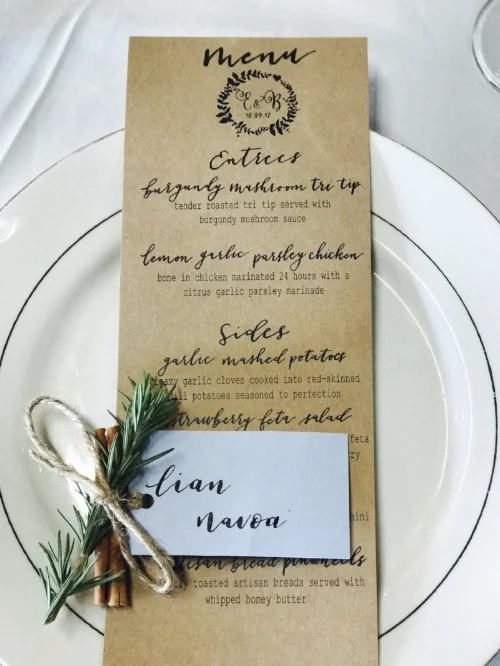 menu
E & B
18.09.17
Entrees
burgundy mushroom tri tip
tender roasted tri tip served with
burgundy mushroom sauce
lemon garlic parsley chicken
bone in chicken marinated 24 hours with a
citrus garlic parsley marinade
Sides
garlic mashed potatoes
garlic cloves cooked into red-skinned
potatoes seasoned to perfection
strawberry feta salad
feta
lian
navoa
bread pinwheels
toasted artisan breads served with
whipped honey butter